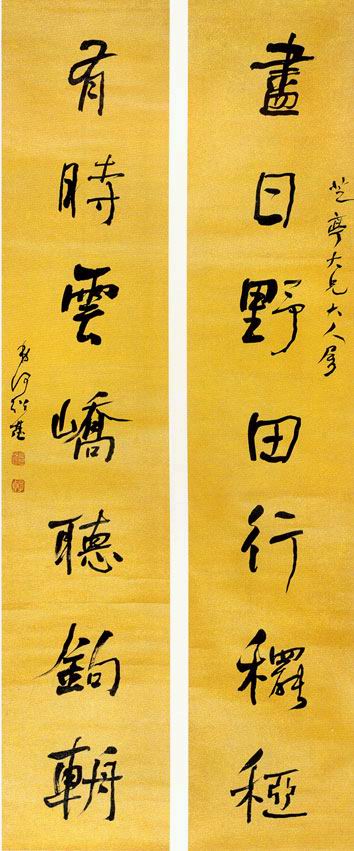 芝亭大兄大人屬
盡日野田行穲稏
有時雲嶠聽鉤輈
弟何紹基